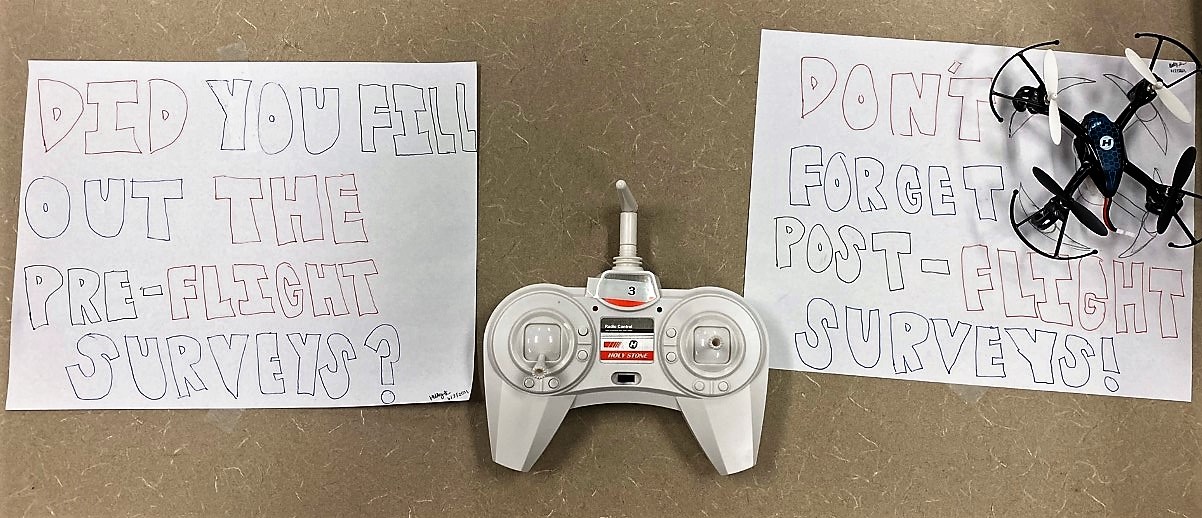 DID YOU FILL
OUT THE
PRE-FLIGHT
SURVEYS?
3
Radio Control
H
HOLY STONE
DON'T
FORGET
POST-FLIGHT
SURVEYS!
H